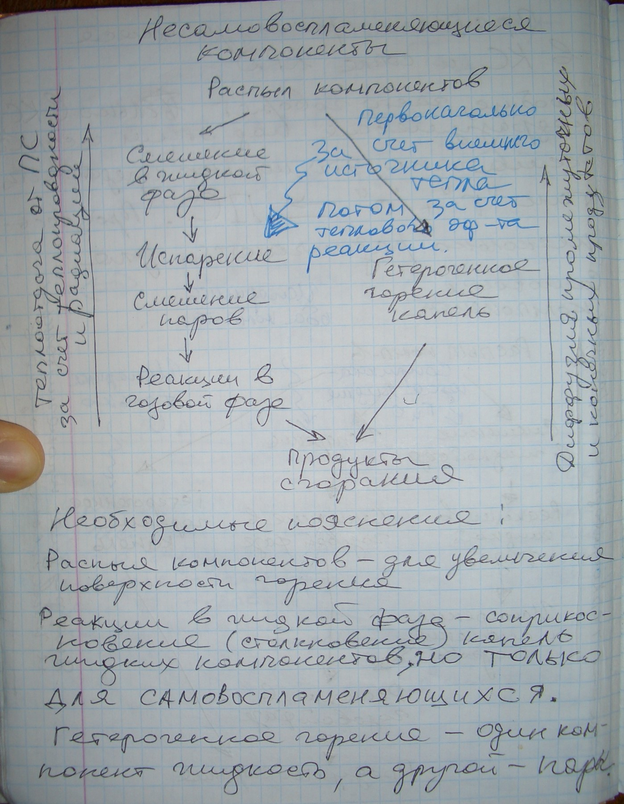 Несамовоспламеняющиеся
компоненты
Распыл компонентов
Теплоотдача от ПС
за счет теплопроводности
и радиацией
Смешение
в жидкой
фазе
Испарение
Смешение
паров
Реакции в
газовой фазе
Первоначально
За счет внешнего
источника
тепла
Потом за счет
теплового эф-та
реакции.
Гетерогенное
горение
капель
Диффузия промежуточных
и конечных продуктов
Продукты
сгорания
Необходимые пояснения:
Распыл компонентов – для увеличения
поверхности горения
Реакции в жидкой фазе – соприкос-
новение (столкновение) капель
жидких компонентов, но только
для самовоспламеняющихся.
Гетерогенное горение – один ком-
понент жидкость, а другой – пары.